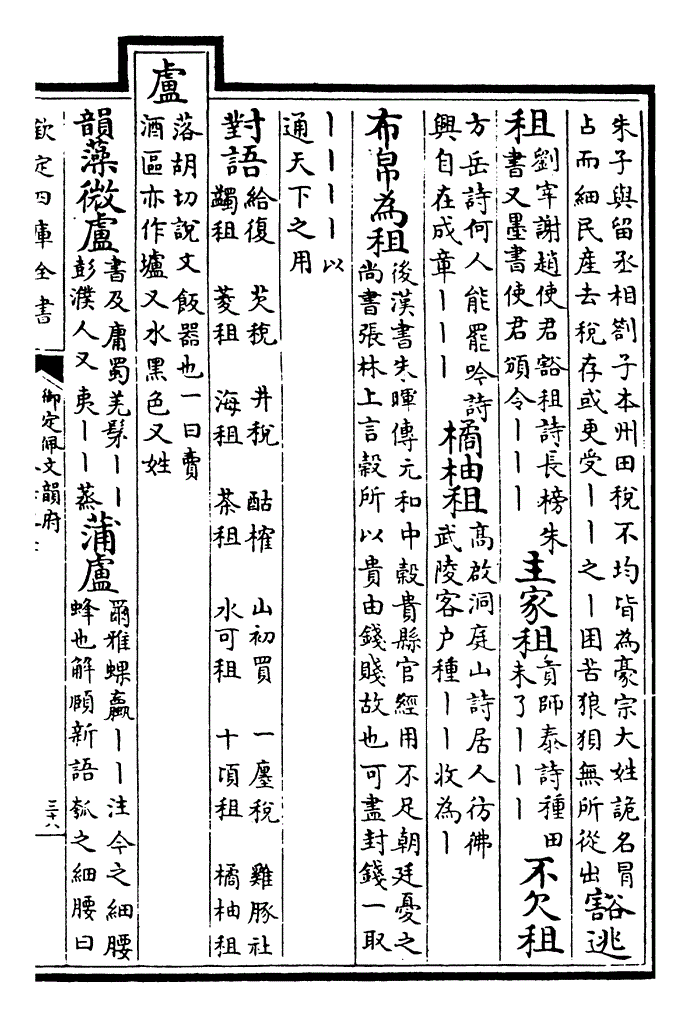 朱子與留丞相劄子本州田稅不均皆為豪宗大姓詭名冒
占而細民產去稅存或更受丨丨之丨困苦狼狽無所從出
豁逃
租
劉宰謝趙使君豁租詩長榜朱
書又墨書使君頒令丨丨丨
主家租
貢師泰詩種田
未了丨丨丨
不欠租
方岳詩何人能罷吟詩
興自在成章丨丨丨
橘柚租
高啟洞庭山詩居人彷彿
武陵客户種丨丨收為丨
布帛為租
後漢書朱暉傳元和中穀貴縣官經用不足朝廷憂之
尚書張林上言穀所以貴由錢賤故也可盡封錢一取
丨丨丨丨以
通天下之用
對語
給復 芡稅 井稅 酤榷 山初買 一廛稅 雞豚社
蠲租 菱租 海租 茶租 水可租 十頃租 橘柚租
盧
落胡切說文飯器也一曰賣
酒區亦作壚又水黑色又姓
韻藻微盧
書及庸蜀羌髳丨丨
彭濮人又夷丨丨蒸
蒲盧
爾雅蜾蠃丨丨注今之細腰
蜂也解頤新語瓠之細腰曰
欽定四庫全書
御定佩文韻府
三十八